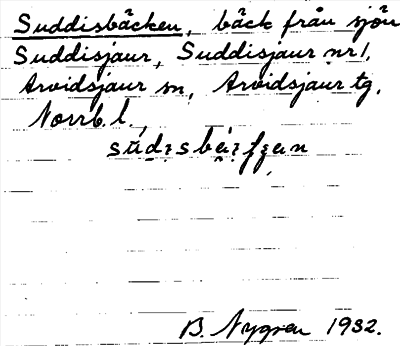 Suddisbäcken, bäck från sjön
Suddisjaur, Suddisjaur nr 1,
Arvidsjaur sn, Arvidsjaur tg,
Norrb. l.
B. Nygren 1932.